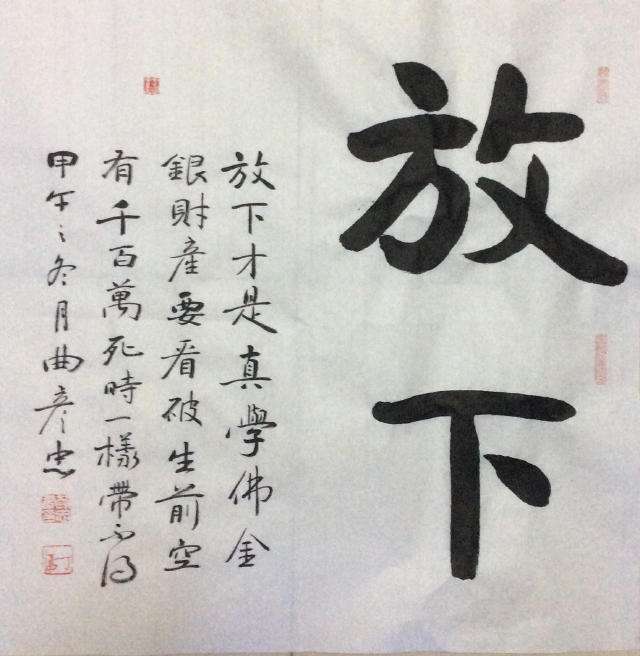 放下
放下才是真學佛金
銀財產要看破生前空
有千百萬死時一樣帶不得
甲午之冬月曲彥忠